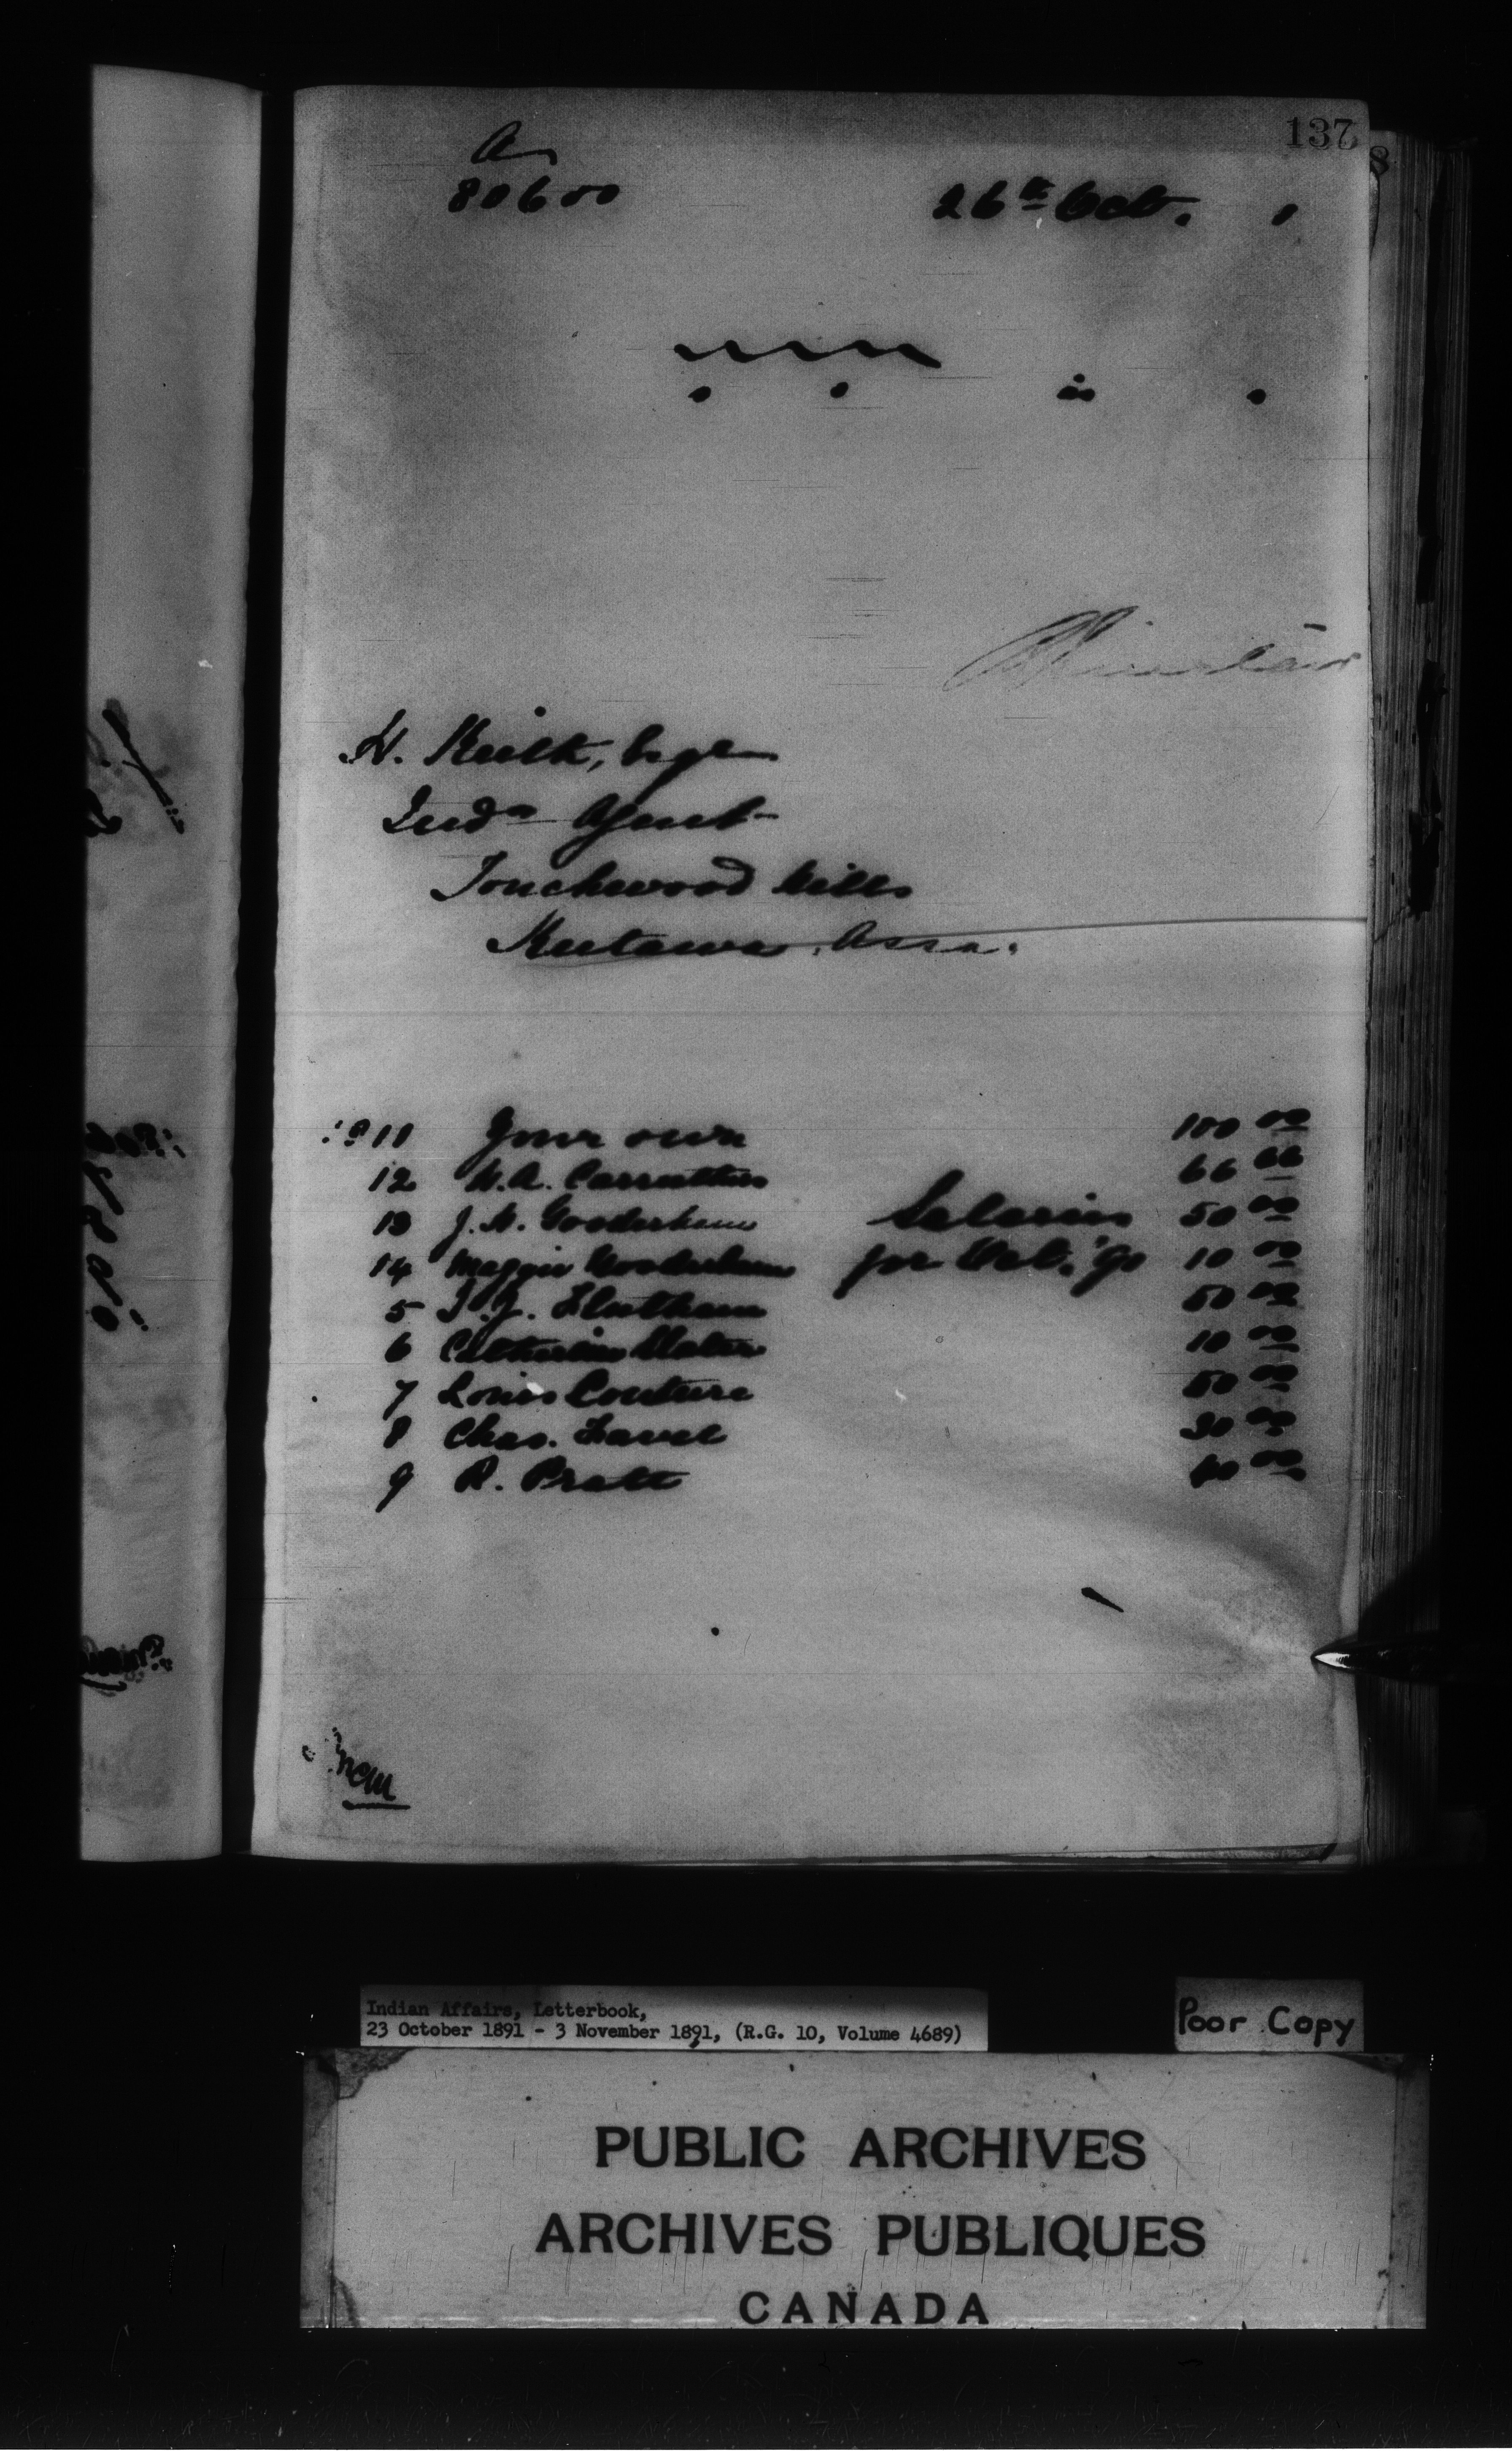 137
80600
26th Oct.
H. Keith, Esqre
Indn Agent
Touchwood Hills
Kutawa, Assa.
11 Your own 100 00
12 W.A. Carruthers 66 66
13 J.H. Gooderham Salaries 50 00
14 Maggie Gooderham for Oct. '91 10 00
5 T.J. 50 00
6 Catherine Slater 10 00
7 Louis Couture 50 00
8 Chas. Favel 30 00
9 R. Pratt 00
Indian Affairs, Letterbook,
23 October 1891 - 3 November 1891, (R.G. 10, Volume 4689)
Poor Copy
PUBLIC ARCHIVES
ARCHIVES PUBLIQUES
CANADA